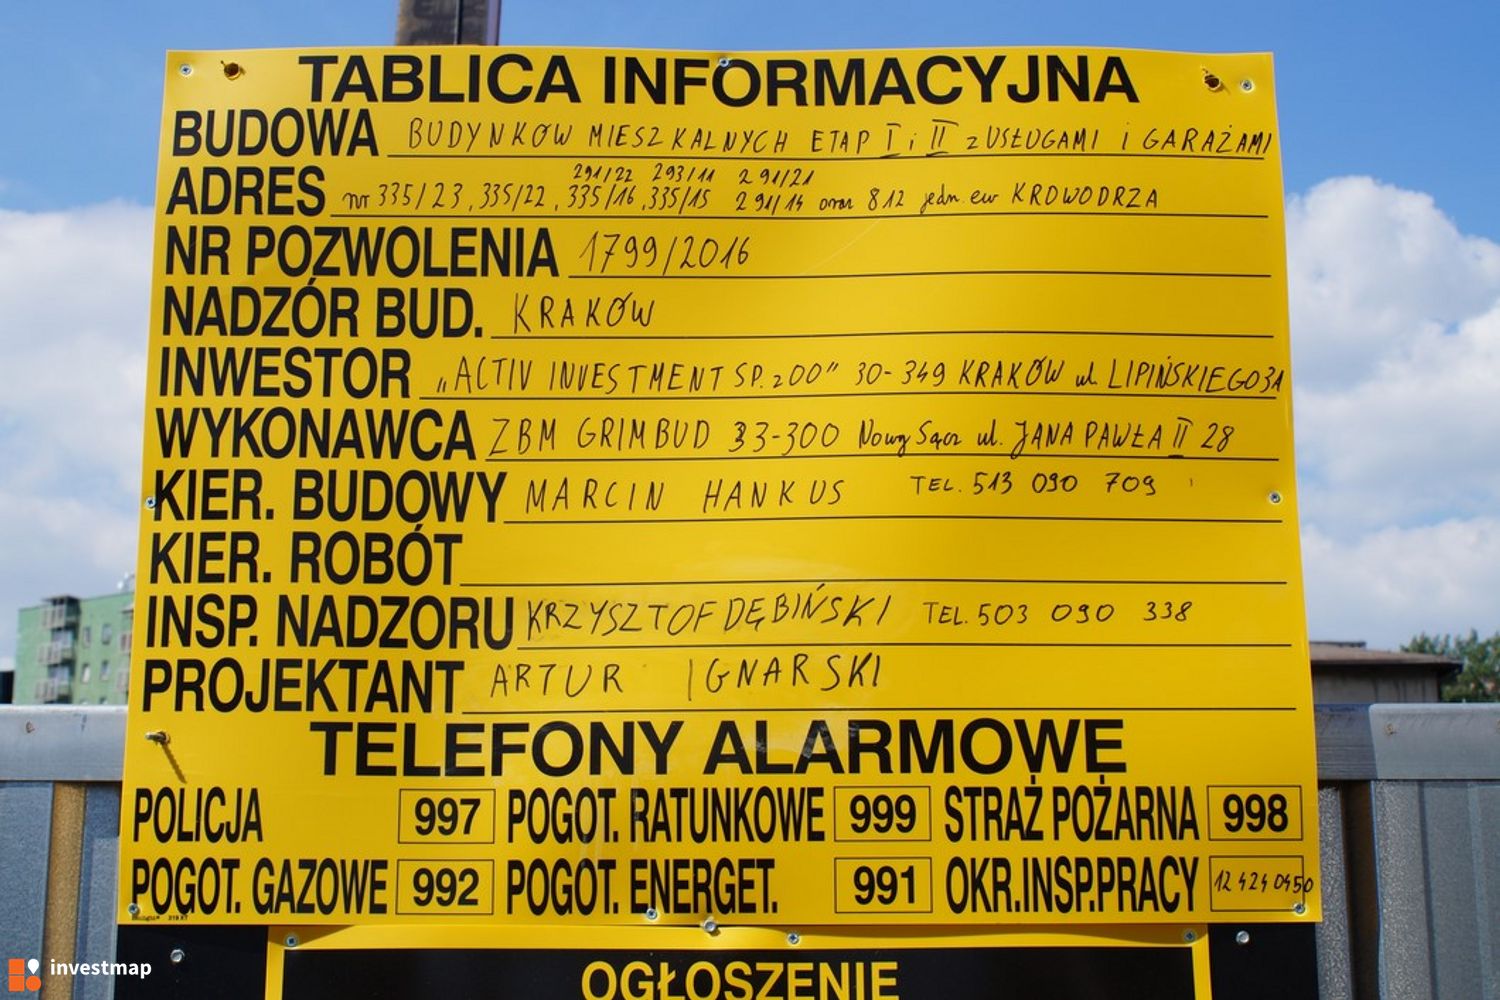 TABLICA INFORMACYJNA
BUDOWA BUDYNKÓW MIESZKALNYCH ETAP I i II z USŁUGAMI i GARAŻAMI
291/22 293/11 291/21
ADRES nr 335/23, 335/22, 335/16, 335/15 291/14 oraz 812 jedn. ew KROWODRZA
NR POZWOLENIA 1799/2016
NADZÓR BUD. KRAKÓW
INWESTOR „ACTIV INVESTMENT SP. z OO” 30-349 KRAKÓW ul. LIPIŃSKIEGO 3A
WYKONAWCA ZBM GRIMBUD 33-300 Nowy Sącz ul. JANA PAWŁA II 28
KIER. BUDOWY MARCIN HANKUS TEL. 513 090 709
KIER. ROBÓT
INSP. NADZORU KRZYSZTOF DĘBIŃSKI TEL. 503 090 338
PROJEKTANT ARTUR IGNARSKI
TELEFONY ALARMOWE
POLICJA 997 POGOT. RATUNKOWE 999 STRAŻ POŻARNA 998
POGOT. GAZOWE 992 POGOT. ENERGET. 991 OKR.INSP.PRACY 12 424 0450
OGŁOSZENIE
investmap